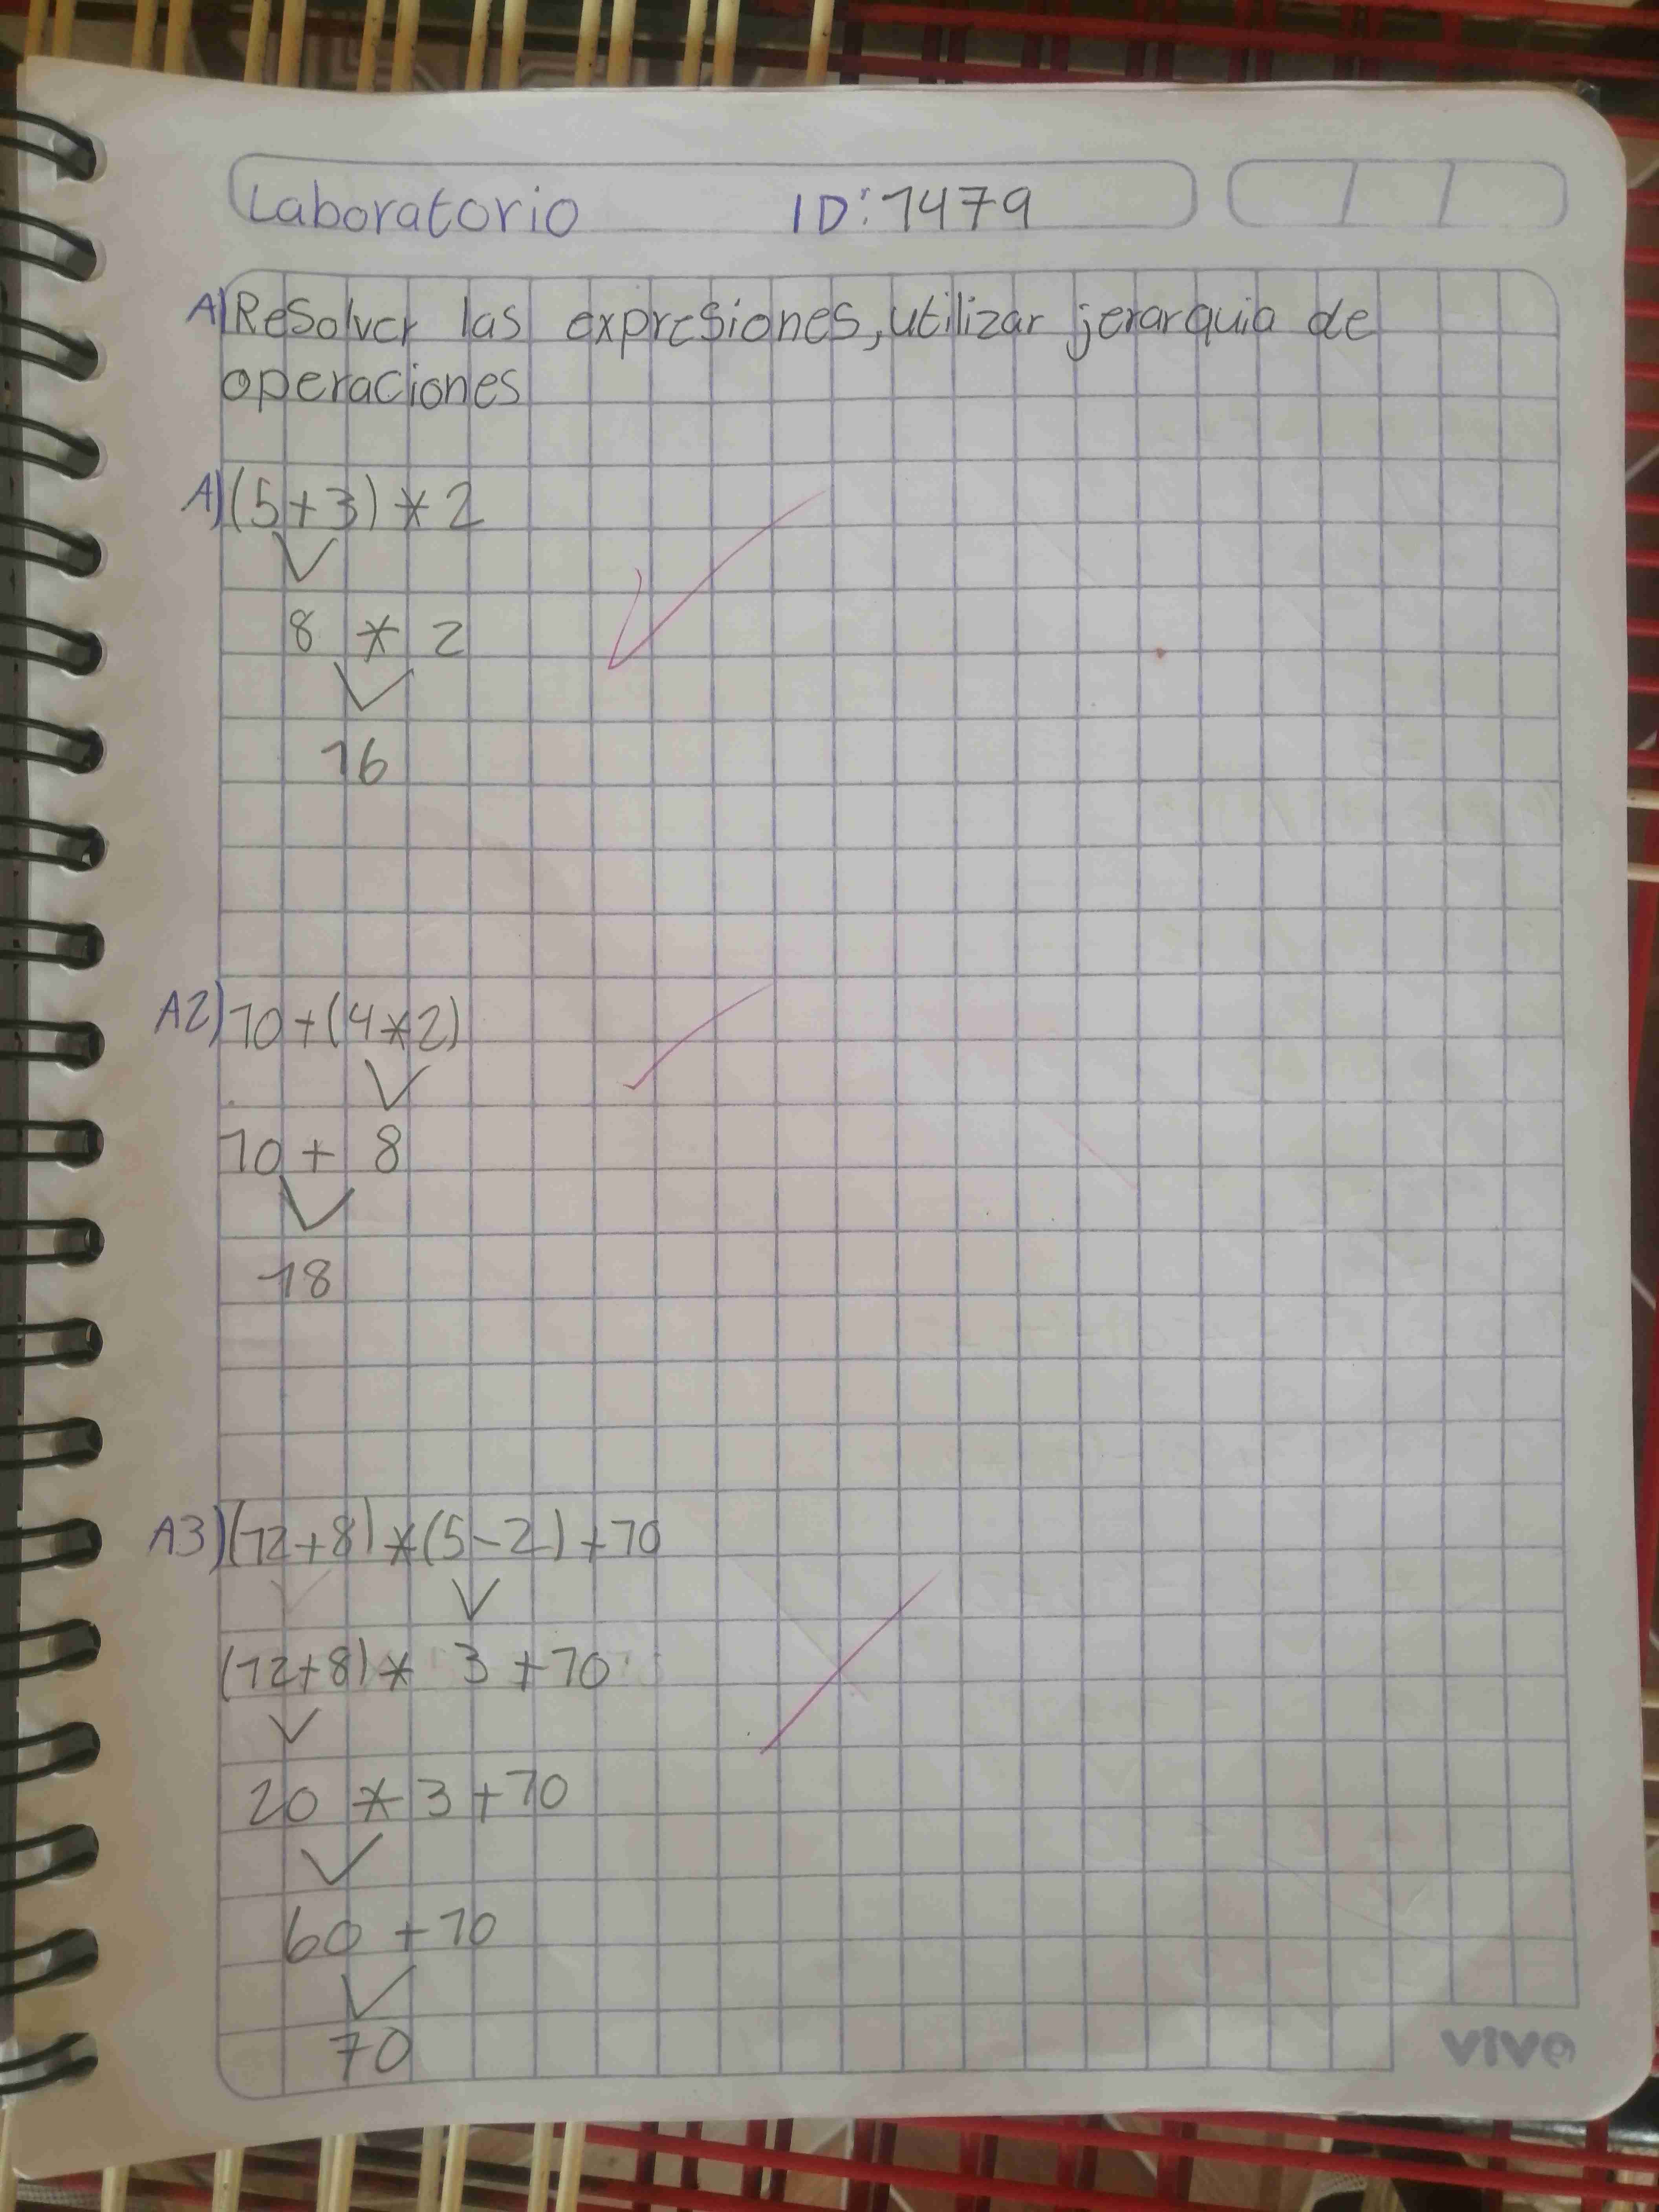 Laboratorio ID: 1479
A) Resolver las expresiones, utilizar jerarquia de
operaciones
A) (5+3) * 2
8 * 2
16
A2) 10+(4*2)
10 + 8
18
A3) (12+8)*(5-2)+10
(12+8)* 3 +10
20 * 3+10
60 +10
70
vivo